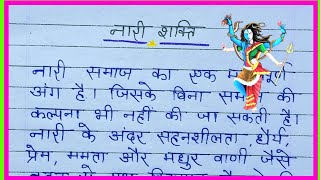 नारी शक्ति
नारी समाज का एक
अंग है। जिसके बिना की
कल्पना भी नहीं की जा सकती है।
नारी के अंदर सहनशीलता, धैर्य,
प्रेम, ममता और मधुर वाणी जैसे